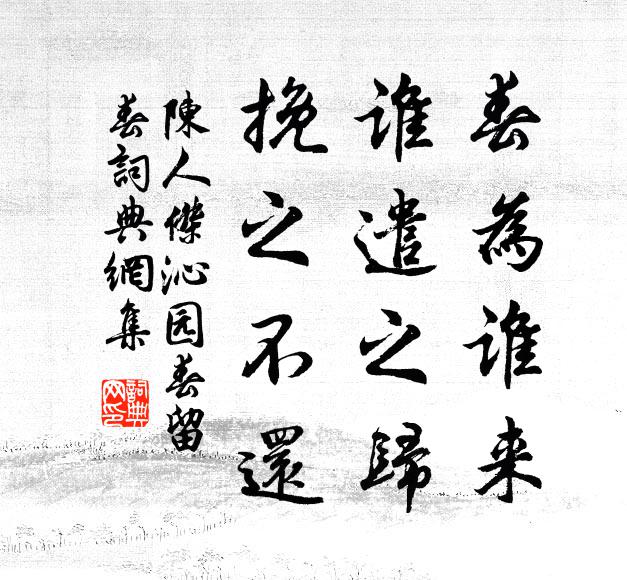 春為誰来
誰遣之歸
挽之不還
陳人傑沁园春留
春詞典網集
詞典
网印